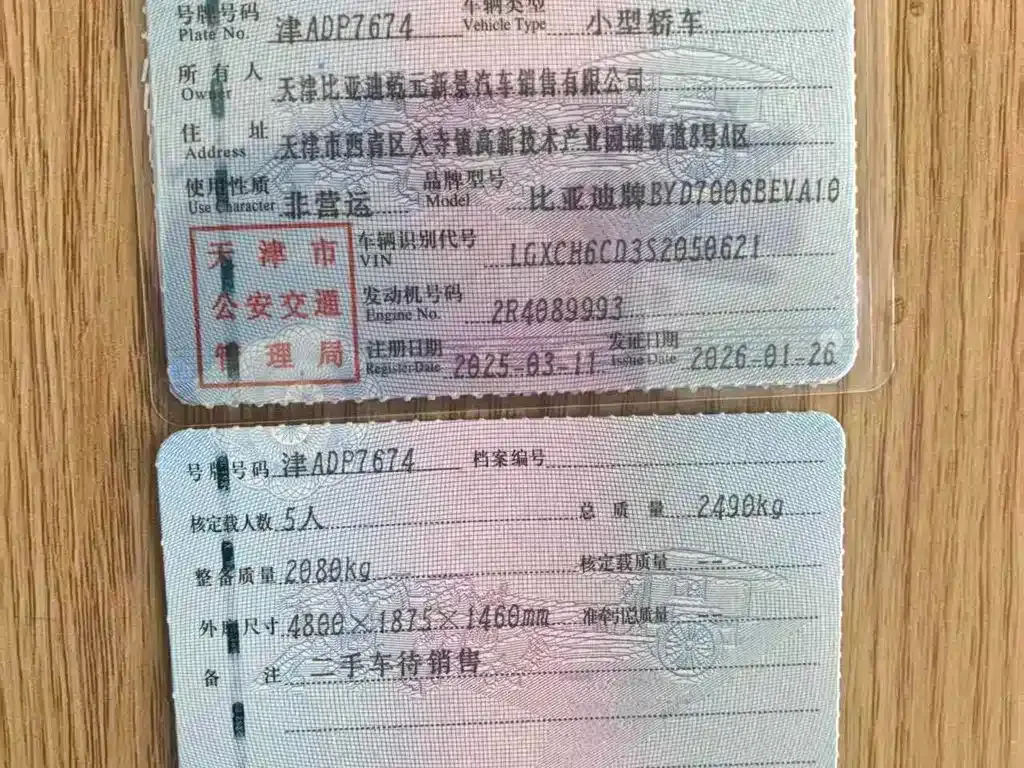 号牌号码 津ADP7674 车辆类型 小型轿车
Plate No. Vehicle Type
所有人 天津比亚迪乾元新景汽车销售有限公司
Owner
住址 天津市西青区大寺镇高新技术产业园储源道8号A区
Address
使用性质 非营运 品牌型号 比亚迪牌BYD7006BEVA10
Use Character Model
天津市
公安交通
管理局
车辆识别代号 LGXCH6CD3S2050621
VIN
发动机号码 2R4089993
Engine No.
注册日期 2025-03-11 发证日期 2026-01-26
Register Date Issue Date
号牌号码 津ADP7674 档案编号
核定载人数 5人 总质量 2490kg
整备质量 2080kg 核定载质量 --
外廓尺寸 4800×1875×1460mm 准牵引总质量 --
备注 二手车待销售